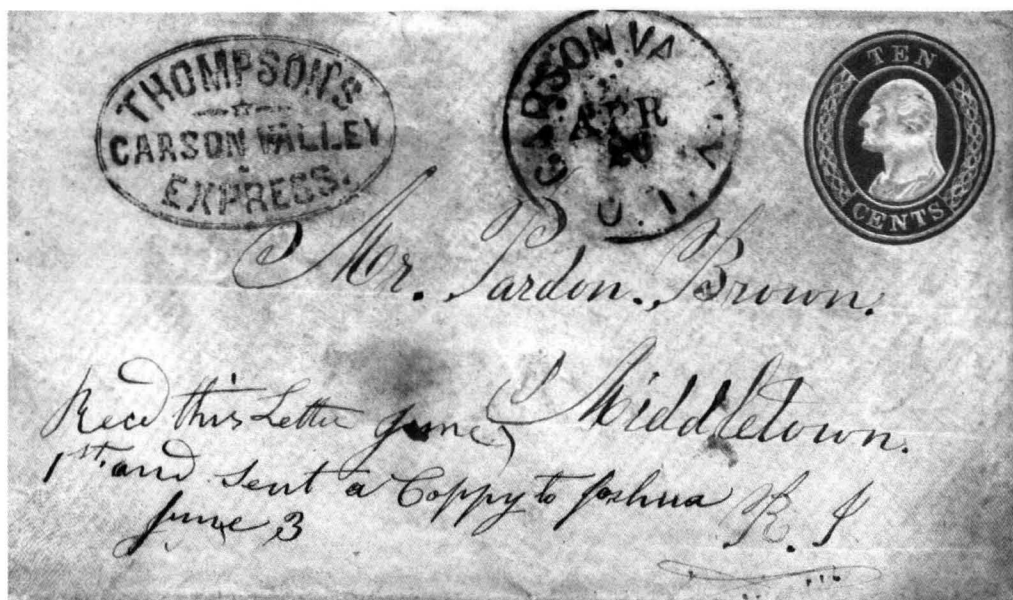 THOMPSON'S
CARSON VALLEY
EXPRESS.
CARSON VALLEY
APR
U. T.
TEN
CENTS
Mr. Pardon. Brown.
Middletown.
R. I
Recd this Letter June
1st. and Sent a Coppy to Joshua
June, 3